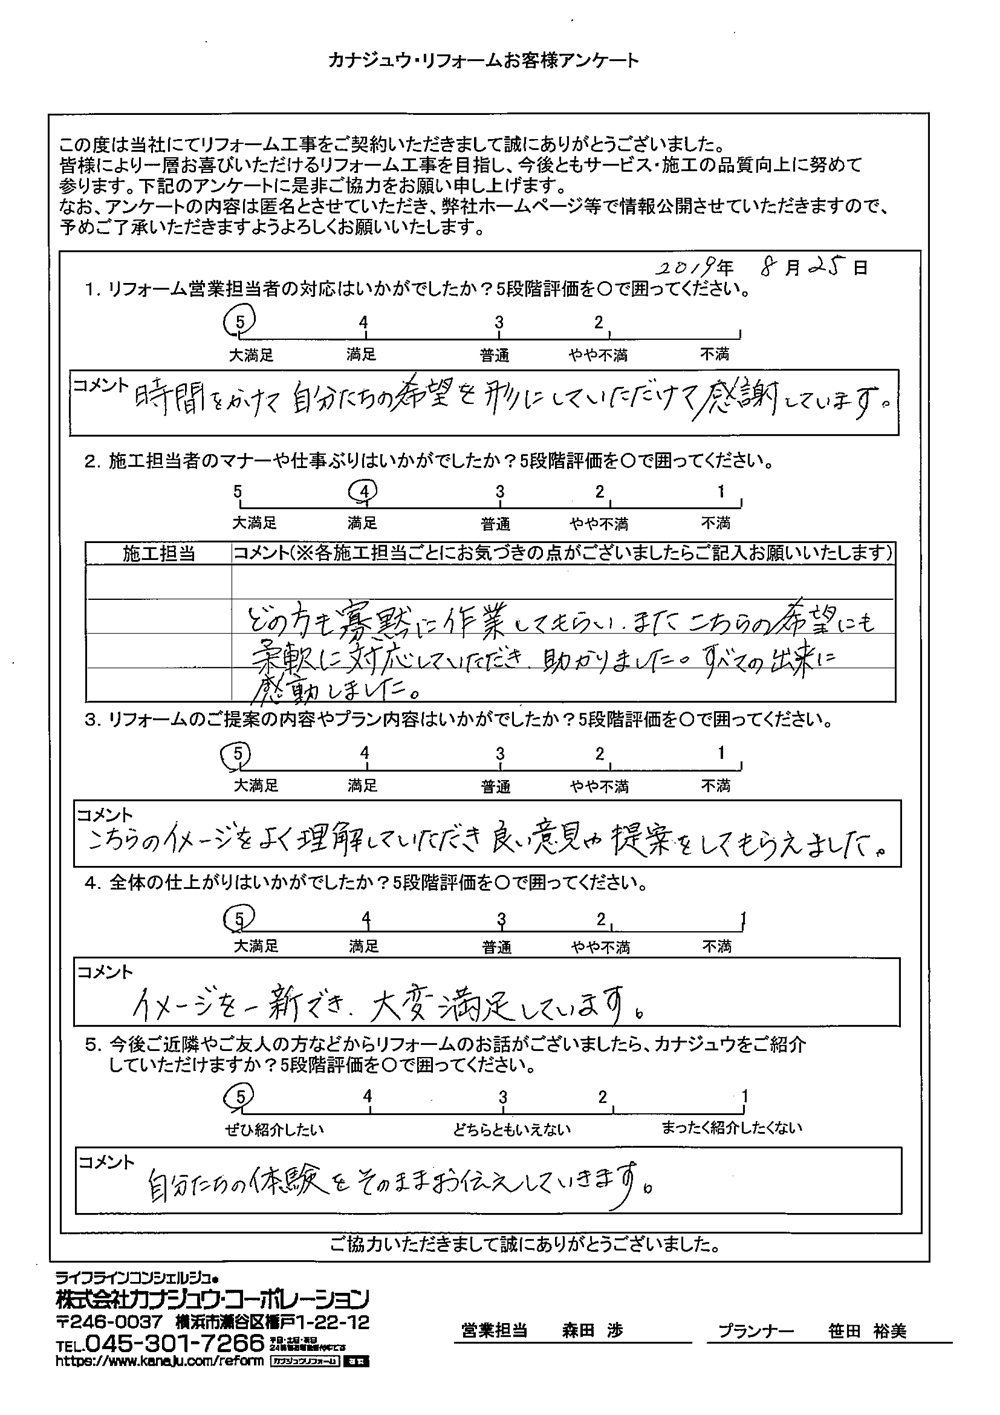 カナジュウ・リフォームお客様アンケート
この度は当社にてリフォーム工事をご契約いただきまして誠にありがとうございました。
皆様により一層お喜びいただけるリフォーム工事を目指し、今後ともサービス・施工の品質向上に努めて
参ります。下記のアンケートに是非ご協力をお願い申し上げます。
なお、アンケートの内容は匿名とさせていただき、弊社ホームページ等で情報公開させていただきますので、
予めご了承いただきますようよろしくお願いいたします。
2019年 8月25日
1. リフォーム営業担当者の対応はいかがでしたか？5段階評価を〇で囲ってください。
5 4 3 2
大満足 満足 普通 やや不満 不満
コメント 時間をかけて自分たちの希望を形にしていただけて感謝しています。
2. 施工担当者のマナーや仕事ぶりはいかがでしたか？5段階評価を〇で囲ってください。
5 4 3 2 1
大満足 満足 普通 やや不満 不満
施工担当 コメント(※各施工担当ごとにお気づきの点がございましたらご記入お願いいたします)
どの方も寡黙に作業してもらい、またこちらの希望にも
柔軟に対応していただき、助かりました。すべての出来に
感動しました。
3. リフォームのご提案の内容やプラン内容はいかがでしたか？5段階評価を〇で囲ってください。
5 4 3 2 1
大満足 満足 普通 やや不満 不満
コメント
こちらのイメージをよく理解していただき良い意見や提案をしてもらえました。
4. 全体の仕上がりはいかがでしたか？5段階評価を〇で囲ってください。
5 4 3 2 1
大満足 満足 普通 やや不満 不満
コメント
イメージを一新でき、大変満足しています。
5. 今後ご近隣やご友人の方などからリフォームのお話がございましたら、カナジュウをご紹介
していただけますか？5段階評価を〇で囲ってください。
5 4 3 2 1
ぜひ紹介したい どちらともいえない まったく紹介したくない
コメント
自分たちの体験をそのままお伝えしていきます。
ご協力いただきまして誠にありがとうございました。
ライフラインコンシェルジュ
株式会社カナジュウ・コーポレーション
〒246-0037 横浜市瀬谷区橋戸1-22-12
TEL.045-301-7266
https://www.kanaju.com/reform カナジュウリフォーム
営業担当 森田 渉 プランナー 笹田 裕美